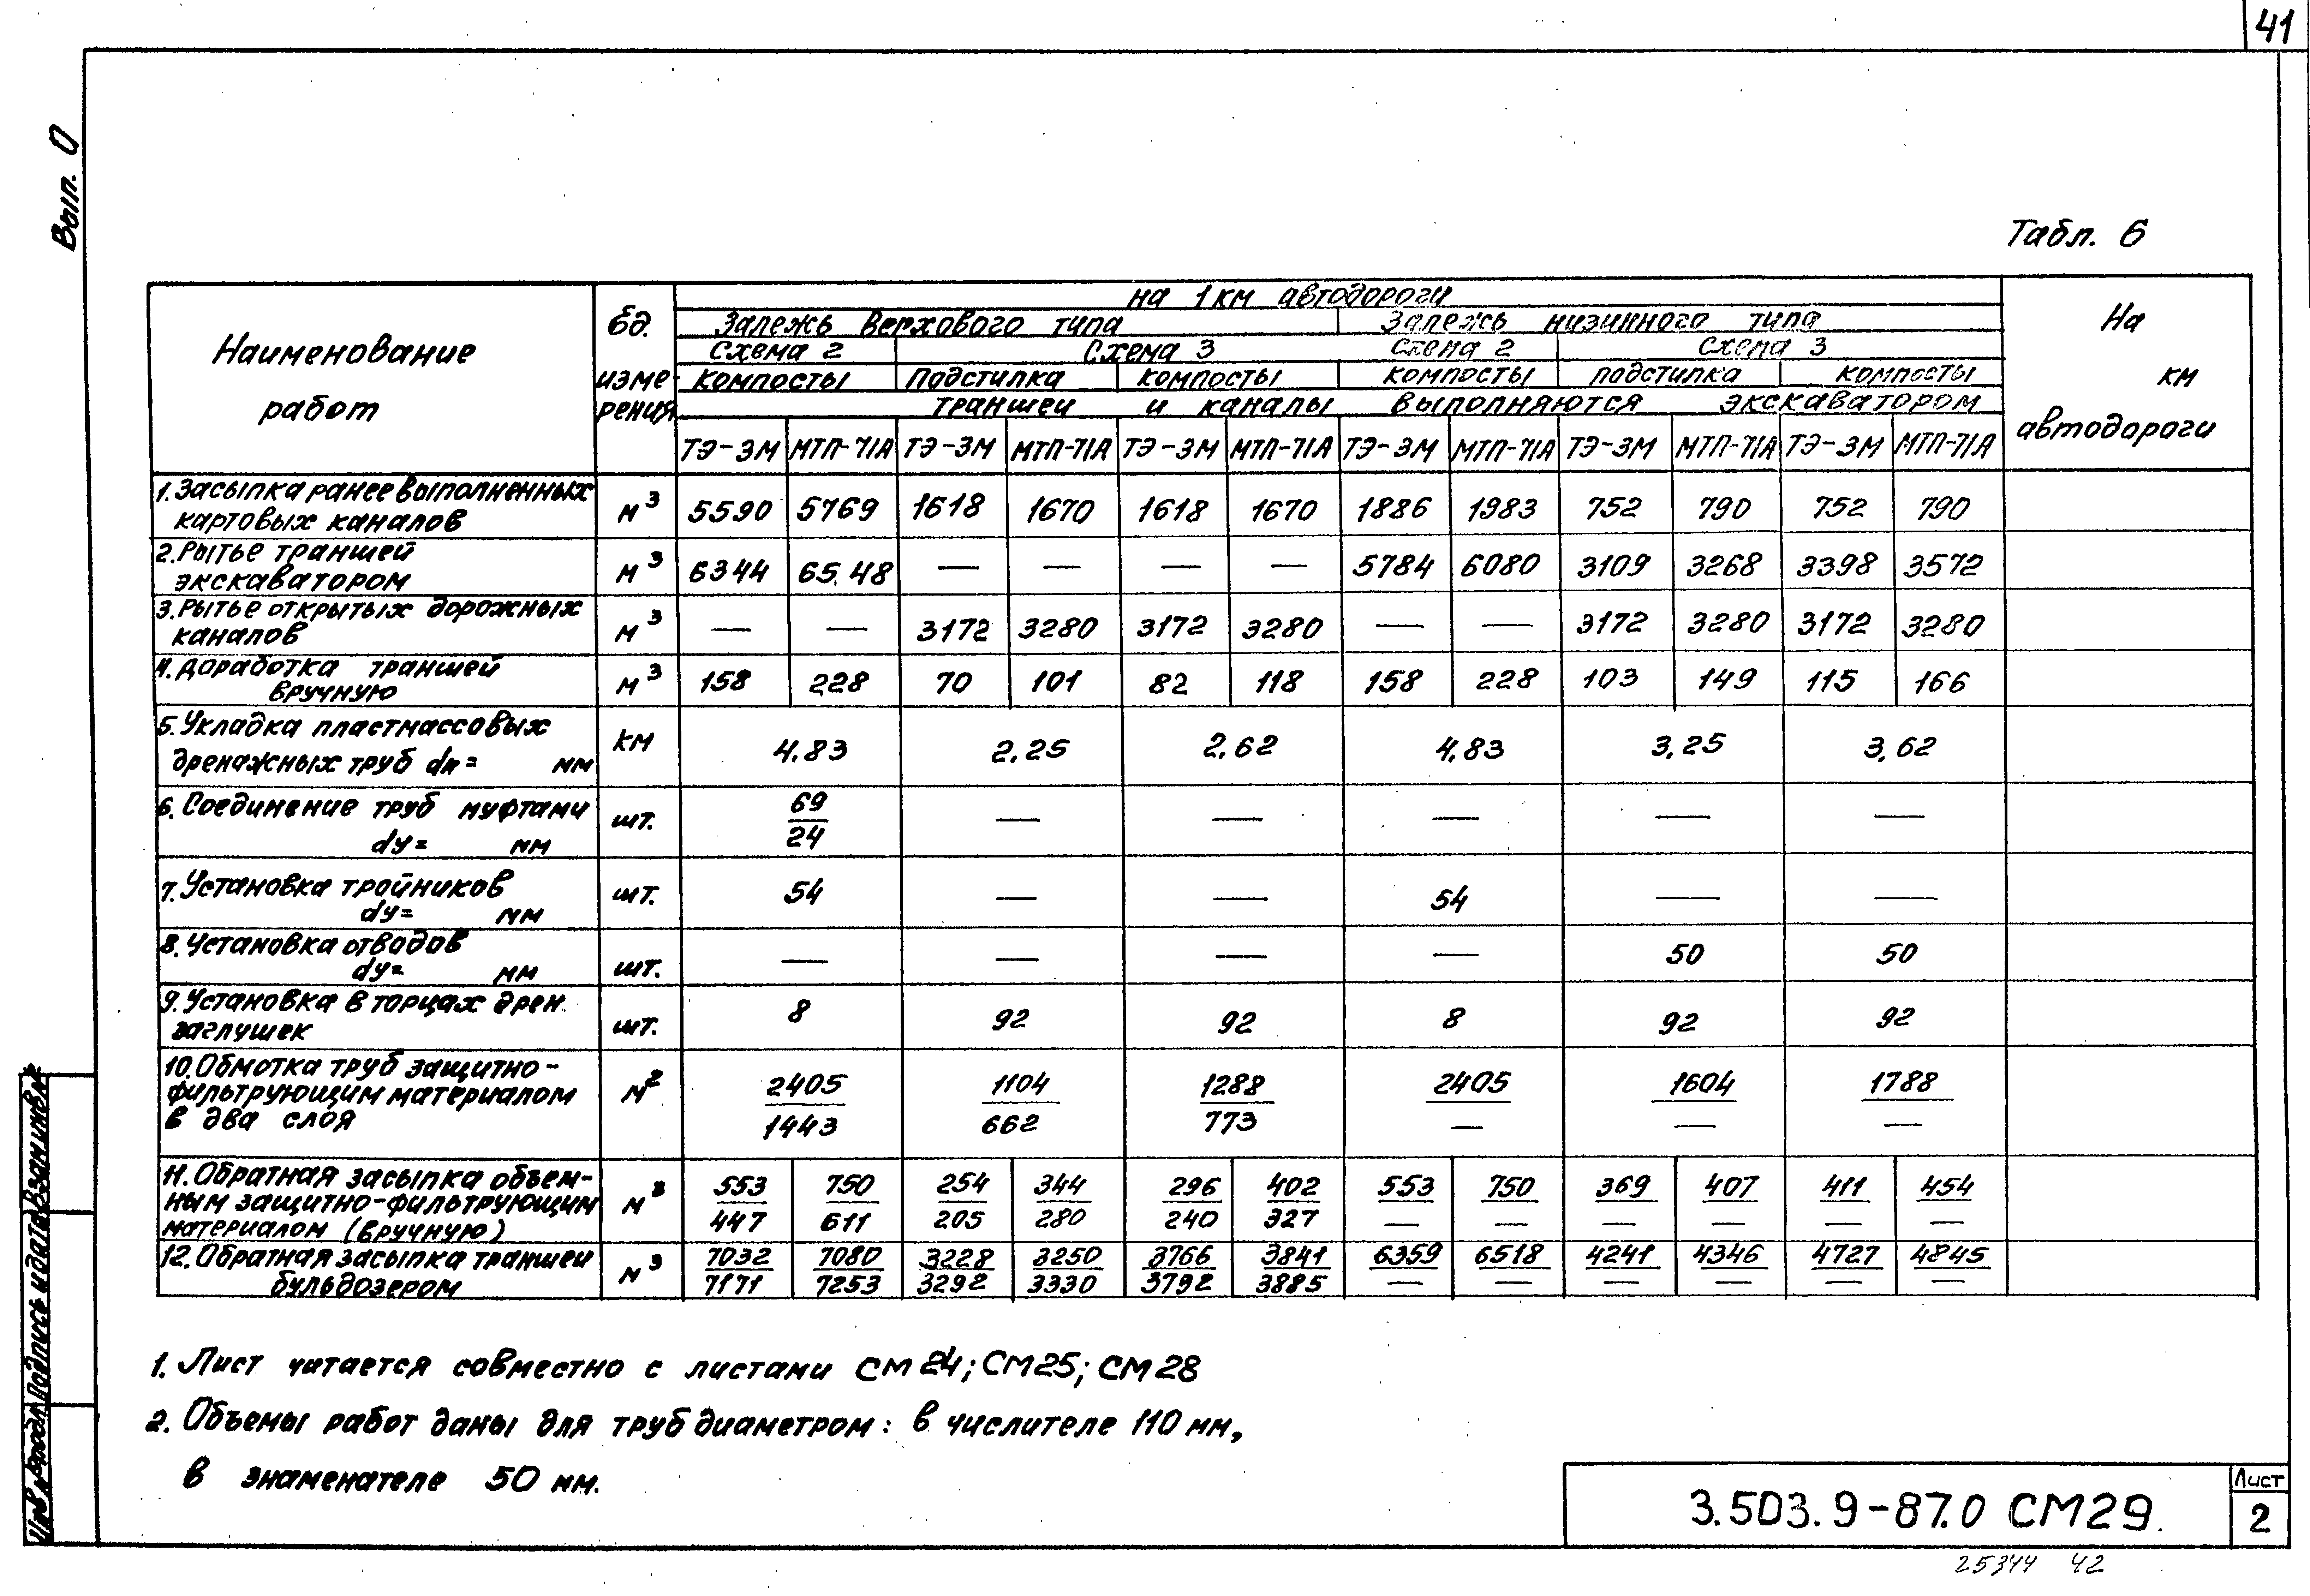 41
Вып. 0
Табл. 6
Наименование работ | Ед. измерения | на 1 км автодороги | На км автодороги
Залежь верхового типа | Залежь низинного типа
Схема 2 | Схема 3 | Схема 2 | Схема 3
компосты | подстилка | компосты | компосты | подстилка | компосты
траншеи и каналы выполняются экскаватором
ТЭ-3М | МТП-71А | ТЭ-3М | МТП-71А | ТЭ-3М | МТП-71А | ТЭ-3М | МТП-71А | ТЭ-3М | МТП-71А | ТЭ-3М | МТП-71А
1. Засыпка ранее выполненных
картовых каналов | м³ | 5590 | 5769 | 1618 | 1670 | 1618 | 1670 | 1886 | 1983 | 752 | 790 | 752 | 790
2. Рытье траншей
экскаватором | м³ | 6344 | 65.48 | — | — | — | — | 5784 | 6080 | 3109 | 3268 | 3398 | 3572
3. Рытье открытых дорожных
каналов | м³ | — | — | 3172 | 3280 | 3172 | 3280 | — | — | 3172 | 3280 | 3172 | 3280
4. Доработка траншей
вручную | м³ | 158 | 228 | 70 | 101 | 82 | 118 | 158 | 228 | 103 | 149 | 115 | 166
5. Укладка пластмассовых
дренажных труб dн= мм | км | 4.83 | 2.25 | 2.62 | 4.83 | 3.25 | 3.62
6. Соединение труб муфтами
dу= мм | шт. | 69/24 | — | — | — | — | —
7. Установка тройников
dу= мм | шт. | 54 | — | — | 54 | — | —
8. Установка отводов
dу= мм | шт. | — | — | — | — | 50 | 50
9. Установка в торцах дрен
заглушек | шт. | 8 | 92 | 92 | 8 | 92 | 92
10. Обмотка труб защитно-
фильтрующим материалом
в два слоя | м² | 2405/1443 | 1104/662 | 1288/773 | 2405/— | 1604/— | 1788/—
11. Обратная засыпка объем-
ным защитно-фильтрующим
материалом (вручную) | м³ | 553/447 | 750/611 | 254/205 | 344/280 | 296/240 | 402/327 | 553/— | 750/— | 369/— | 407/— | 411/— | 454/—
12. Обратная засыпка траншеи
бульдозером | м³ | 7032/7171 | 7080/7253 | 3228/3292 | 3250/3330 | 3766/3792 | 3841/3885 | 6359/— | 6518/— | 4241/— | 4346/— | 4727/— | 4845/—
1. Лист читается совместно с листами СМ24; СМ25; СМ28
2. Объемы работ даны для труб диаметром: в числителе 110 мм,
в знаменателе 50 мм.
Инв.№подл. Подпись и дата Взам.инв.№
3.503.9-87.0 СМ29.
Лист
2
25344 42